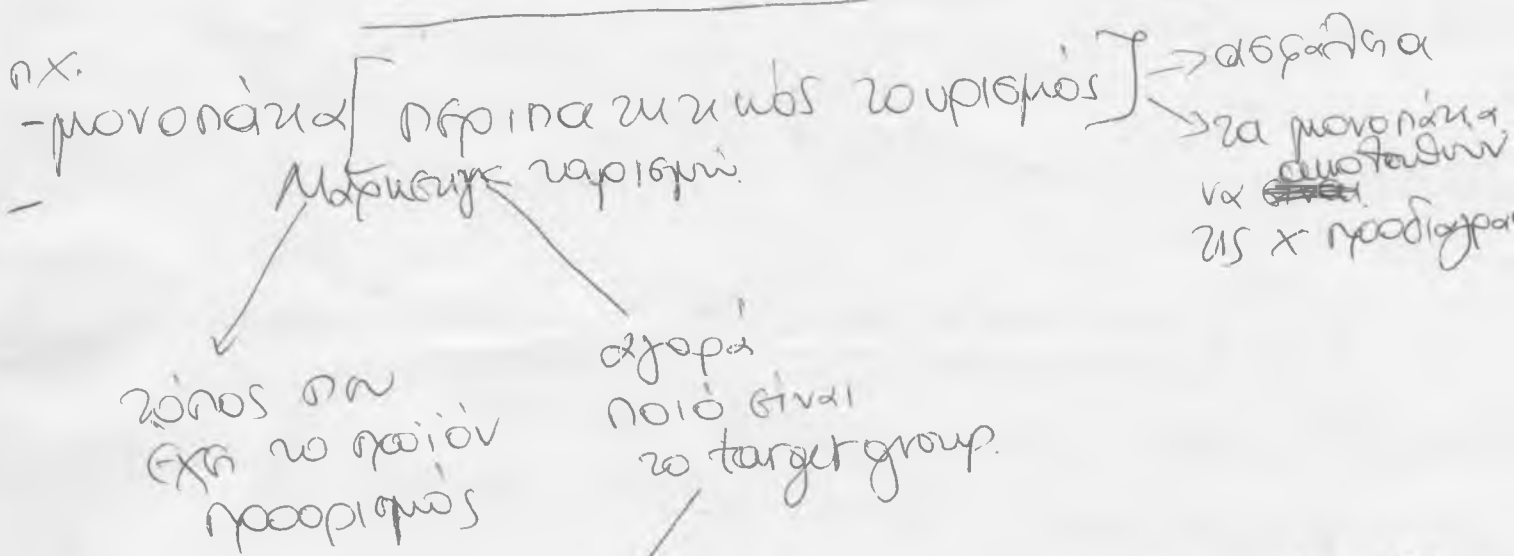 πχ.
-μονοπάτια [περιπατητικός τουρισμός] → ασφάλεια
→ τα μονοπάτια
να
τις x προδιαγρα
-
Μάρκετινγκ
τόπος που
έχει το προϊόν
προορισμός
αγορά
ποιό είναι
το target group.